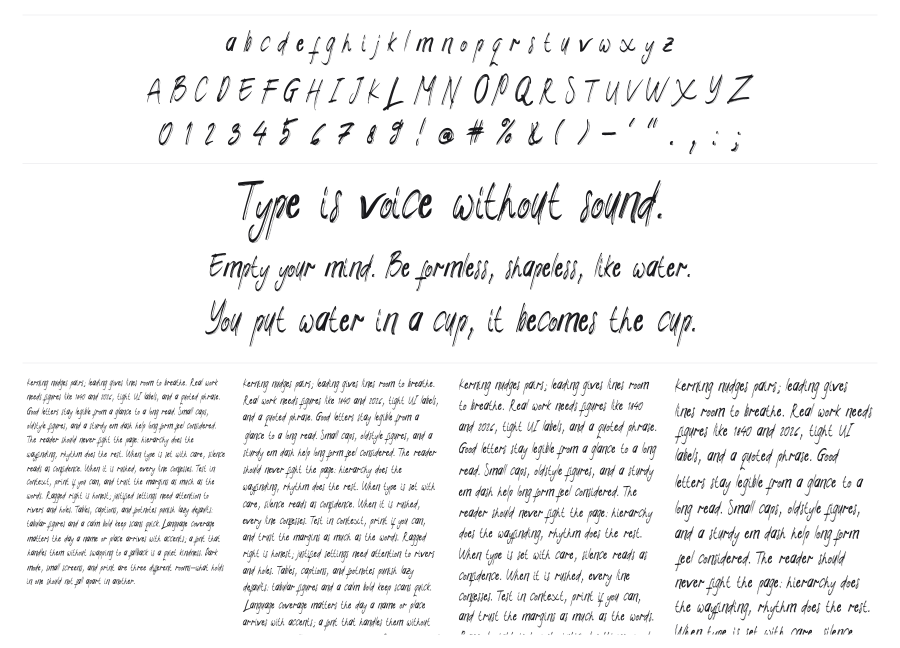 a b c d e f g h i j k l m n o p q r s t u v w x y z
A B C D E F G H I J K L M N O P Q R S T U V W X Y Z
0 1 2 3 4 5 6 7 8 9 ! @ # % & ( ) – ‘ “ . , : ;
Type is voice without sound.
Empty your mind. Be formless, shapeless, like water.
You put water in a cup, it becomes the cup.
Kerning nudges pairs; leading gives lines room to breathe. Real work
needs figures like 1840 and 2026, tight UI labels, and a quoted phrase.
Good letters stay legible from a glance to a long read. Small caps,
oldstyle figures, and a sturdy em dash help long form feel considered.
The reader should never fight the page: hierarchy does the
wayfinding, rhythm does the rest. When type is set with care, silence
reads as confidence. When it is rushed, every line confesses. Test in
context, print if you can, and trust the margins as much as the
words. Ragged right is honest; justified settings need attention to
rivers and holes. Tables, captions, and footnotes punish lazy defaults:
tabular figures and a calm bold keep scans quick. Language coverage
matters the day a name or place arrives with accents; a font that
handles them without swapping to a fallback is a quiet kindness. Dark
mode, small screens, and print are three different rooms—what holds
in one should not fall apart in another.
Kerning nudges pairs; leading gives lines room to breathe.
Real work needs figures like 1840 and 2026, tight UI labels,
and a quoted phrase. Good letters stay legible from a
glance to a long read. Small caps, oldstyle figures, and a
sturdy em dash help long form feel considered. The reader
should never fight the page: hierarchy does the
wayfinding, rhythm does the rest. When type is set with
care, silence reads as confidence. When it is rushed,
every line confesses. Test in context, print if you can,
and trust the margins as much as the words. Ragged
right is honest; justified settings need attention to rivers
and holes. Tables, captions, and footnotes punish lazy
defaults: tabular figures and a calm bold keep scans quick.
Language coverage matters the day a name or place
arrives with accents; a font that handles them without
Kerning nudges pairs; leading gives lines room
to breathe. Real work needs figures like 1840
and 2026, tight UI labels, and a quoted phrase.
Good letters stay legible from a glance to a long
read. Small caps, oldstyle figures, and a sturdy
em dash help long form feel considered. The
reader should never fight the page: hierarchy
does the wayfinding, rhythm does the rest.
When type is set with care, silence reads as
confidence. When it is rushed, every line
confesses. Test in context, print if you can,
and trust the margins as much as the words.
Kerning nudges pairs; leading gives
lines room to breathe. Real work needs
figures like 1840 and 2026, tight UI
labels, and a quoted phrase. Good
letters stay legible from a glance to a
long read. Small caps, oldstyle figures,
and a sturdy em dash help long form
feel considered. The reader should
never fight the page: hierarchy does
the wayfinding, rhythm does the rest.
When type is set with care, silence